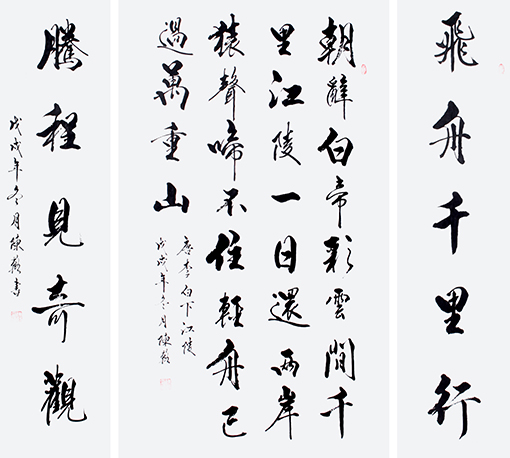 飛舟千里行
朝辭白帝彩雲間千
里江陵一日還兩岸
猿聲啼不住輕舟已
過萬重山
唐李白下江陵
戊戌年冬月陳
騰程見奇觀
戊戌年冬月陳書